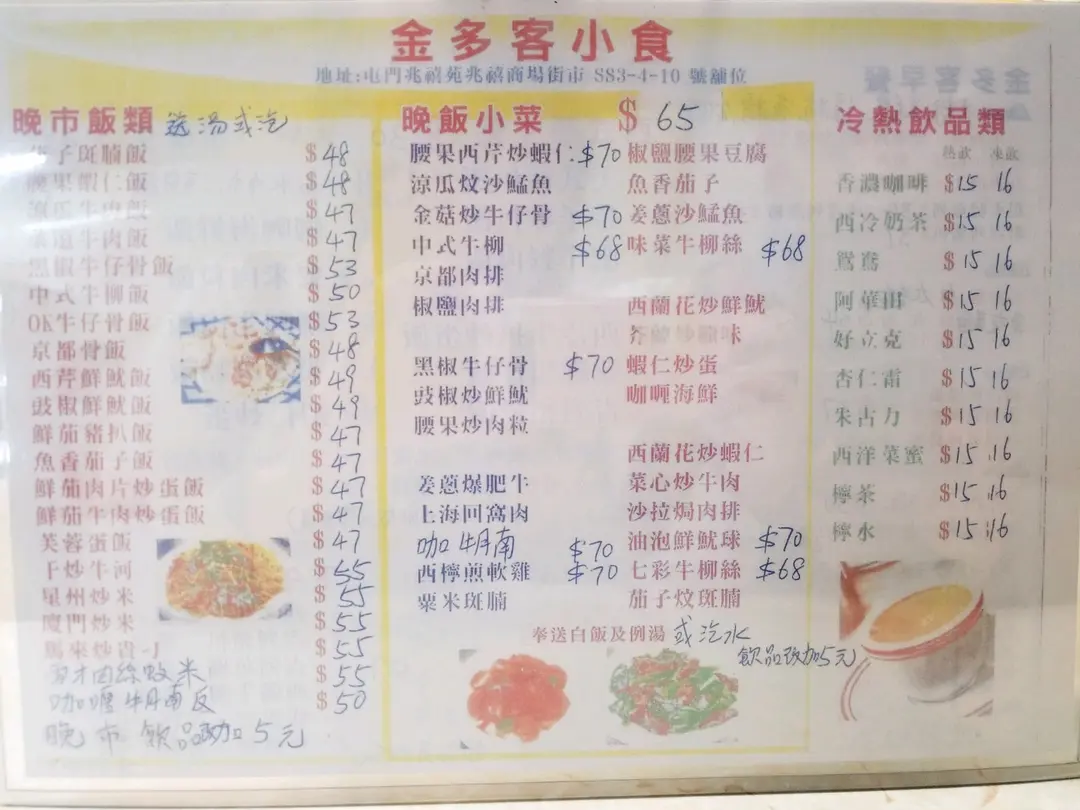 金多客小食
地址:屯門兆禧苑兆禧商場街市 SS3-4-10 號舖位
晚市飯類 送湯或汽
茄子斑腩飯 $48
腰果蝦仁飯 $48
涼瓜牛肉飯 $47
牛肉飯 $47
黑椒牛仔骨飯 $53
中式牛柳飯 $50
OK牛仔骨飯 $53
京都骨飯 $48
西芹鮮魷飯 $49
豉椒鮮魷飯 $49
鮮茄豬扒飯 $47
魚香茄子飯 $47
鮮茄肉片炒蛋飯 $47
鮮茄牛肉炒蛋飯 $47
芙蓉蛋飯 $47
干炒牛河 $55
星州炒米 $55
廈門炒米 $55
馬來炒貴刁 $55
肉絲炆米 $55
咖喱牛腩飯 $50
晚市飲品加5元
晚飯小菜 $65
腰果西芹炒蝦仁 $70
涼瓜炆沙鯭魚
金菇炒牛仔骨 $70
中式牛柳 $68
京都肉排
椒鹽肉排
黑椒牛仔骨 $70
豉椒炒鮮魷
腰果炒肉粒
姜蔥爆肥牛
上海回窩肉
咖牛腩 $70
西檸煎軟雞 $70
粟米斑腩
椒鹽腰果豆腐
魚香茄子
姜蔥沙鯭魚
味菜牛柳絲 $68
西蘭花炒鮮魷
味
蝦仁炒蛋
咖喱海鮮
西蘭花炒蝦仁
菜心炒牛肉
沙拉焗肉排
油泡鮮魷球 $70
七彩牛柳絲 $68
茄子炆斑腩
奉送白飯及例湯 或汽水
飲品改加5元
冷熱飲品類
熱飲 凍飲
香濃咖啡 $15 16
西冷奶茶 $15 16
鴛鴦 $15 16
阿華田 $15 16
好立克 $15 16
杏仁霜 $15 16
朱古力 $15 16
西洋菜蜜 $15 16
檸茶 $15 16
檸水 $15 16